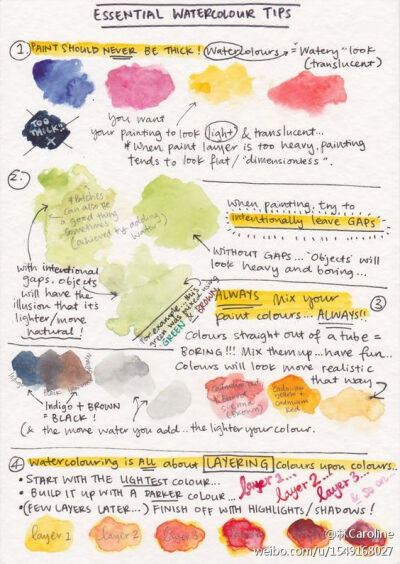 ESSENTIAL WATERCOLOUR TIPS
1. PAINT SHOULD NEVER BE THICK! Watercolours = "Watery" look
(translucent)
TOO
THICK!!
X
you want
your painting to look light & translucent...
* When paint layer is too heavy, painting
tends to look flat/"dimensionless".
2.
* Patches
can also be
a good thing
sometimes
(achieved by adding
water)
when painting, try to
intentionally leave GAPS
WITHOUT GAPS... "Objects" will
look heavy and boring...
with intentional
gaps, objects
will have the
illusion that it's
lighter/more
natural!
For example.. this
green was mixed using
GREEN & BROWN
ALWAYS Mix your
paint colours... ALWAYS!!
3
Colours straight out of a tube =
BORING!!! Mix them up... have fun...
Colours will look more realistic
that way
Indigo
BLACK
Indigo + BROWN
= BLACK!
cadmium red
& Burnt
sienna
(brown)
cadmium
yellow +
cadmium
Red
(& the more water you add.. the lighter your colour.
4 watercolouring is ALL about LAYERING colours upon colours..
• START WITH THE LIGHTEST COLOUR...
• BUILD IT UP WITH A DARKER COLOUR...
• (FEW LAYERS LATER...) FINISH OFF WITH HIGHLIGHTS/SHADOWS!
layer 1...
layer 2...
layer 3...
& so on...
layer 1
layer 2
layer 3
@林Caroline
weibo.com/u/1549168027